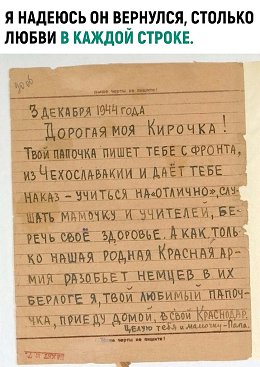 Я НАДЕЮСЬ ОН ВЕРНУЛСЯ, СТОЛЬКО
ЛЮБВИ В КАЖДОЙ СТРОКЕ.
выше черты не пишите!
3 ДЕКАБРЯ 1944 ГОДА
ДОРОГАЯ МОЯ КИРОЧКА!
ТВОЙ ПАПОЧКА ПИШЕТ ТЕБЕ С ФРОНТА,
ИЗ ЧЕХОСЛАВАКИИ И ДАЁТ ТЕБЕ
НАКАЗ - УЧИТЬСЯ НА «ОТЛИЧНО», СЛУ-
ШАТЬ МАМОЧКУ И УЧИТЕЛЕЙ, БЕ-
РЕЧЬ СВОЁ ЗДОРОВЬЕ. А КАК ТОЛЬ-
КО НАШАЯ РОДНАЯ КРАСНАЯ АР-
МИЯ РАЗОБЬЕТ НЕМЦЕВ В ИХ
БЕРЛОГЕ Я, ТВОЙ ЛЮБИМЫЙ ПАПОЧ-
ЧКА, ПРИЕДУ ДОМОЙ, В СВОЙ КРАСНОДАР.
ЦЕЛУЮ тебя и мамочку - Папа.
черты не пишите!